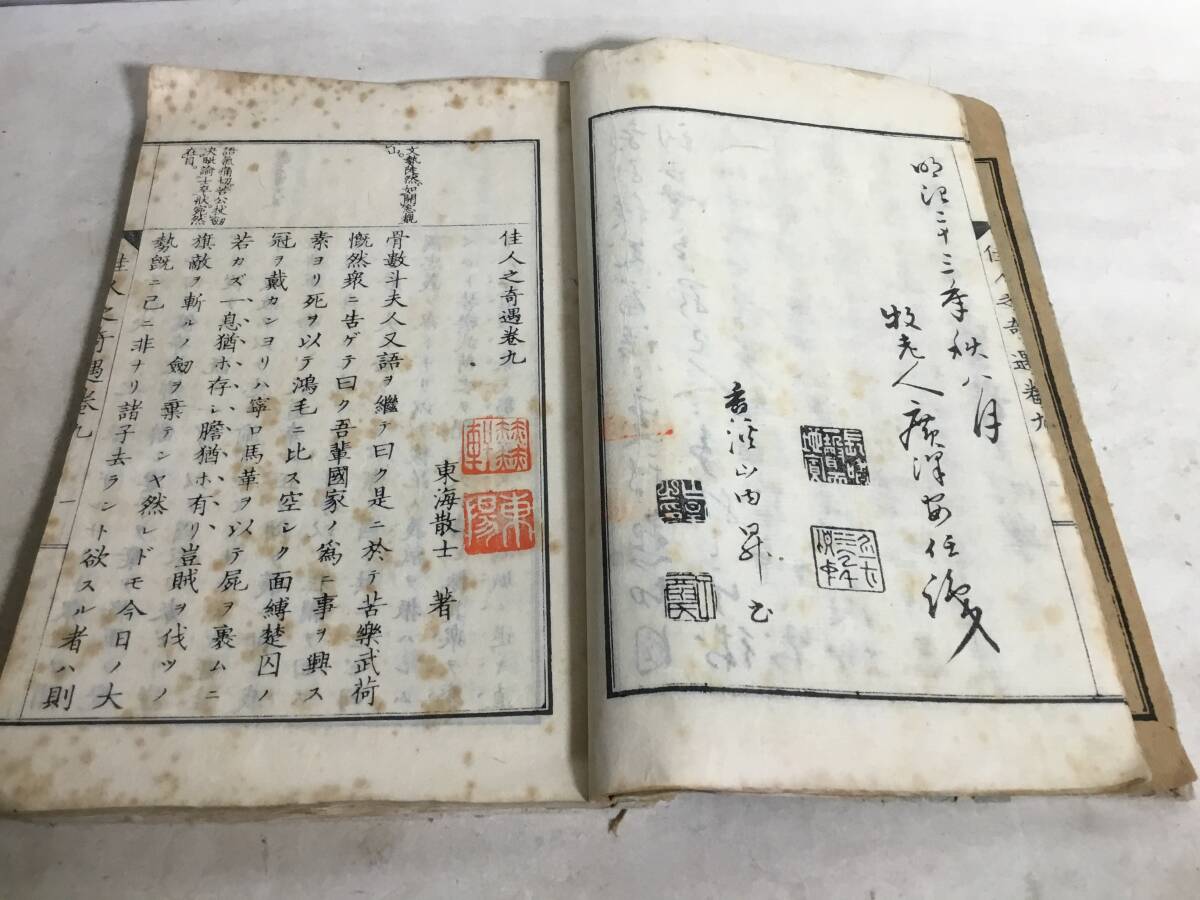 明治二十三年秋八月
牧老人廣澤安任撰
香溪山内昇書
佳人之奇遇卷九
佳人之奇遇卷九
東海散士 著
骨數斗夫人又語ヲ繼テ曰ク是ニ於テ苦樂武荷
慨然衆ニ告ゲテ曰ク吾輩國家ノ爲ニ事ヲ興ス
素ヨリ死ヲ以テ鴻毛ニ比ス空シク面縛楚囚ノ
冠ヲ戴カンヨリハ寧ロ馬革ヲ以テ屍ヲ裹ムニ
若カズ一息猶ホ存シ膽猶ホ有リ豈賊ヲ伐ツノ
旗敵ヲ斬ルノ劔ヲ棄テンヤ然レドモ今日ノ大
勢旣ニ已ニ非ナリ諸子去ラント欲スル者ハ則
佳人之奇遇卷九
一